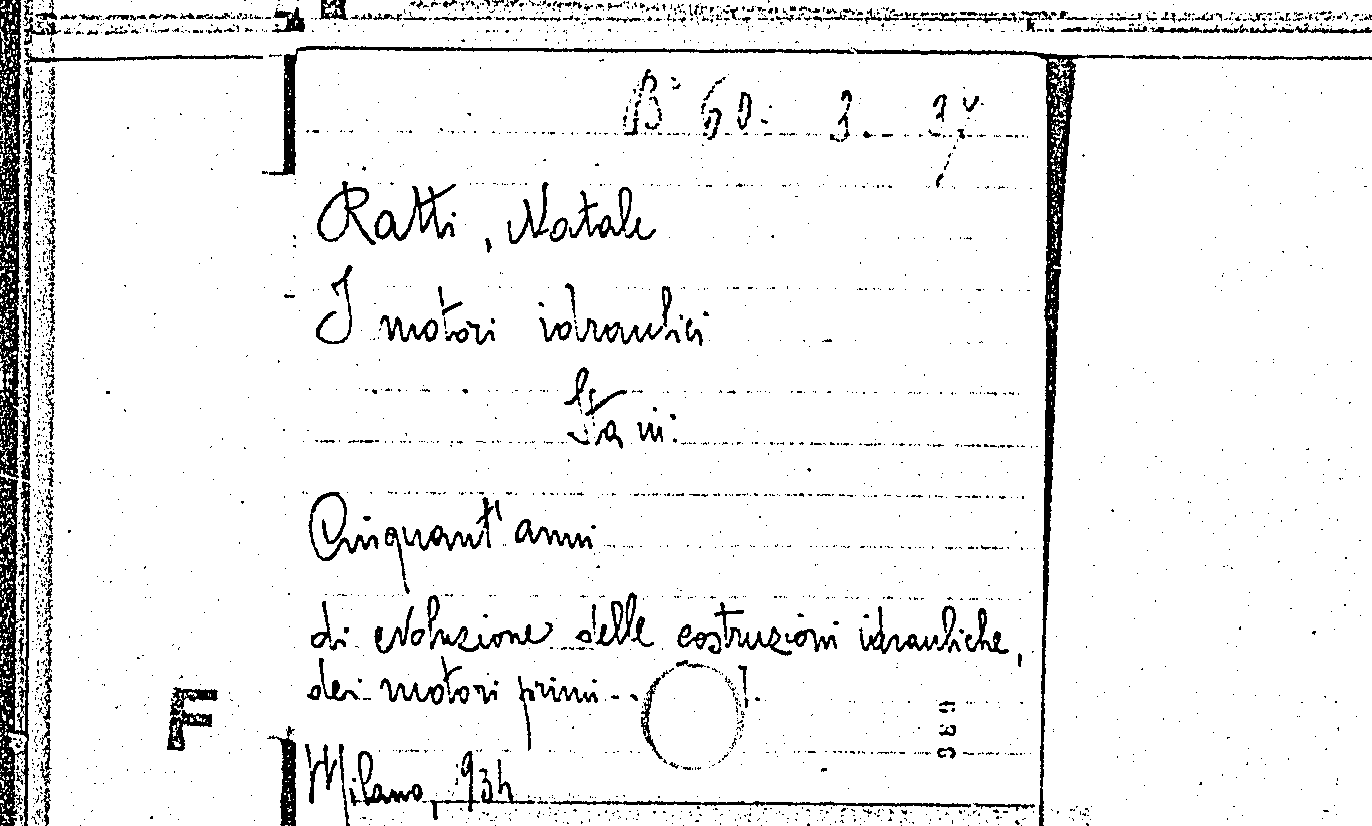 B° 60. 3. 37
Ratti, Natale
I motori idraulici
Sta in:
Cinquant'anni
di evoluzione delle costruzioni idrauliche,
dei motori primi ... ].
F
Milano, 934